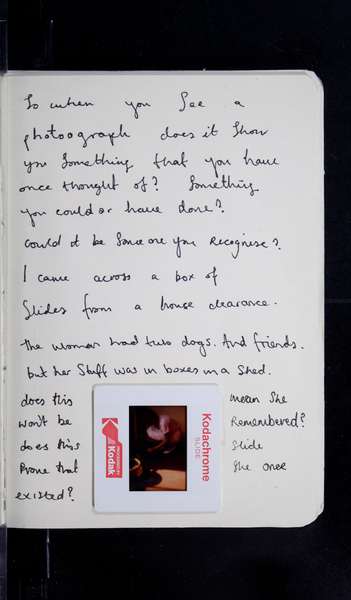 So when you See a
photoograph does it Show
you Something that you have
once thought of? Something
you could or have done?
Could it be Someone you Recognise?
I came across a box of
Slides from a house clearance.
The woman had two dogs. And friends.
but her Stuff was in boxes in a Shed.
does this mean She
won't be Remembered?
does this Slide
Prove that She once
existed?
Kodachrome
SLIDE
PROCESSED BY
Kodak